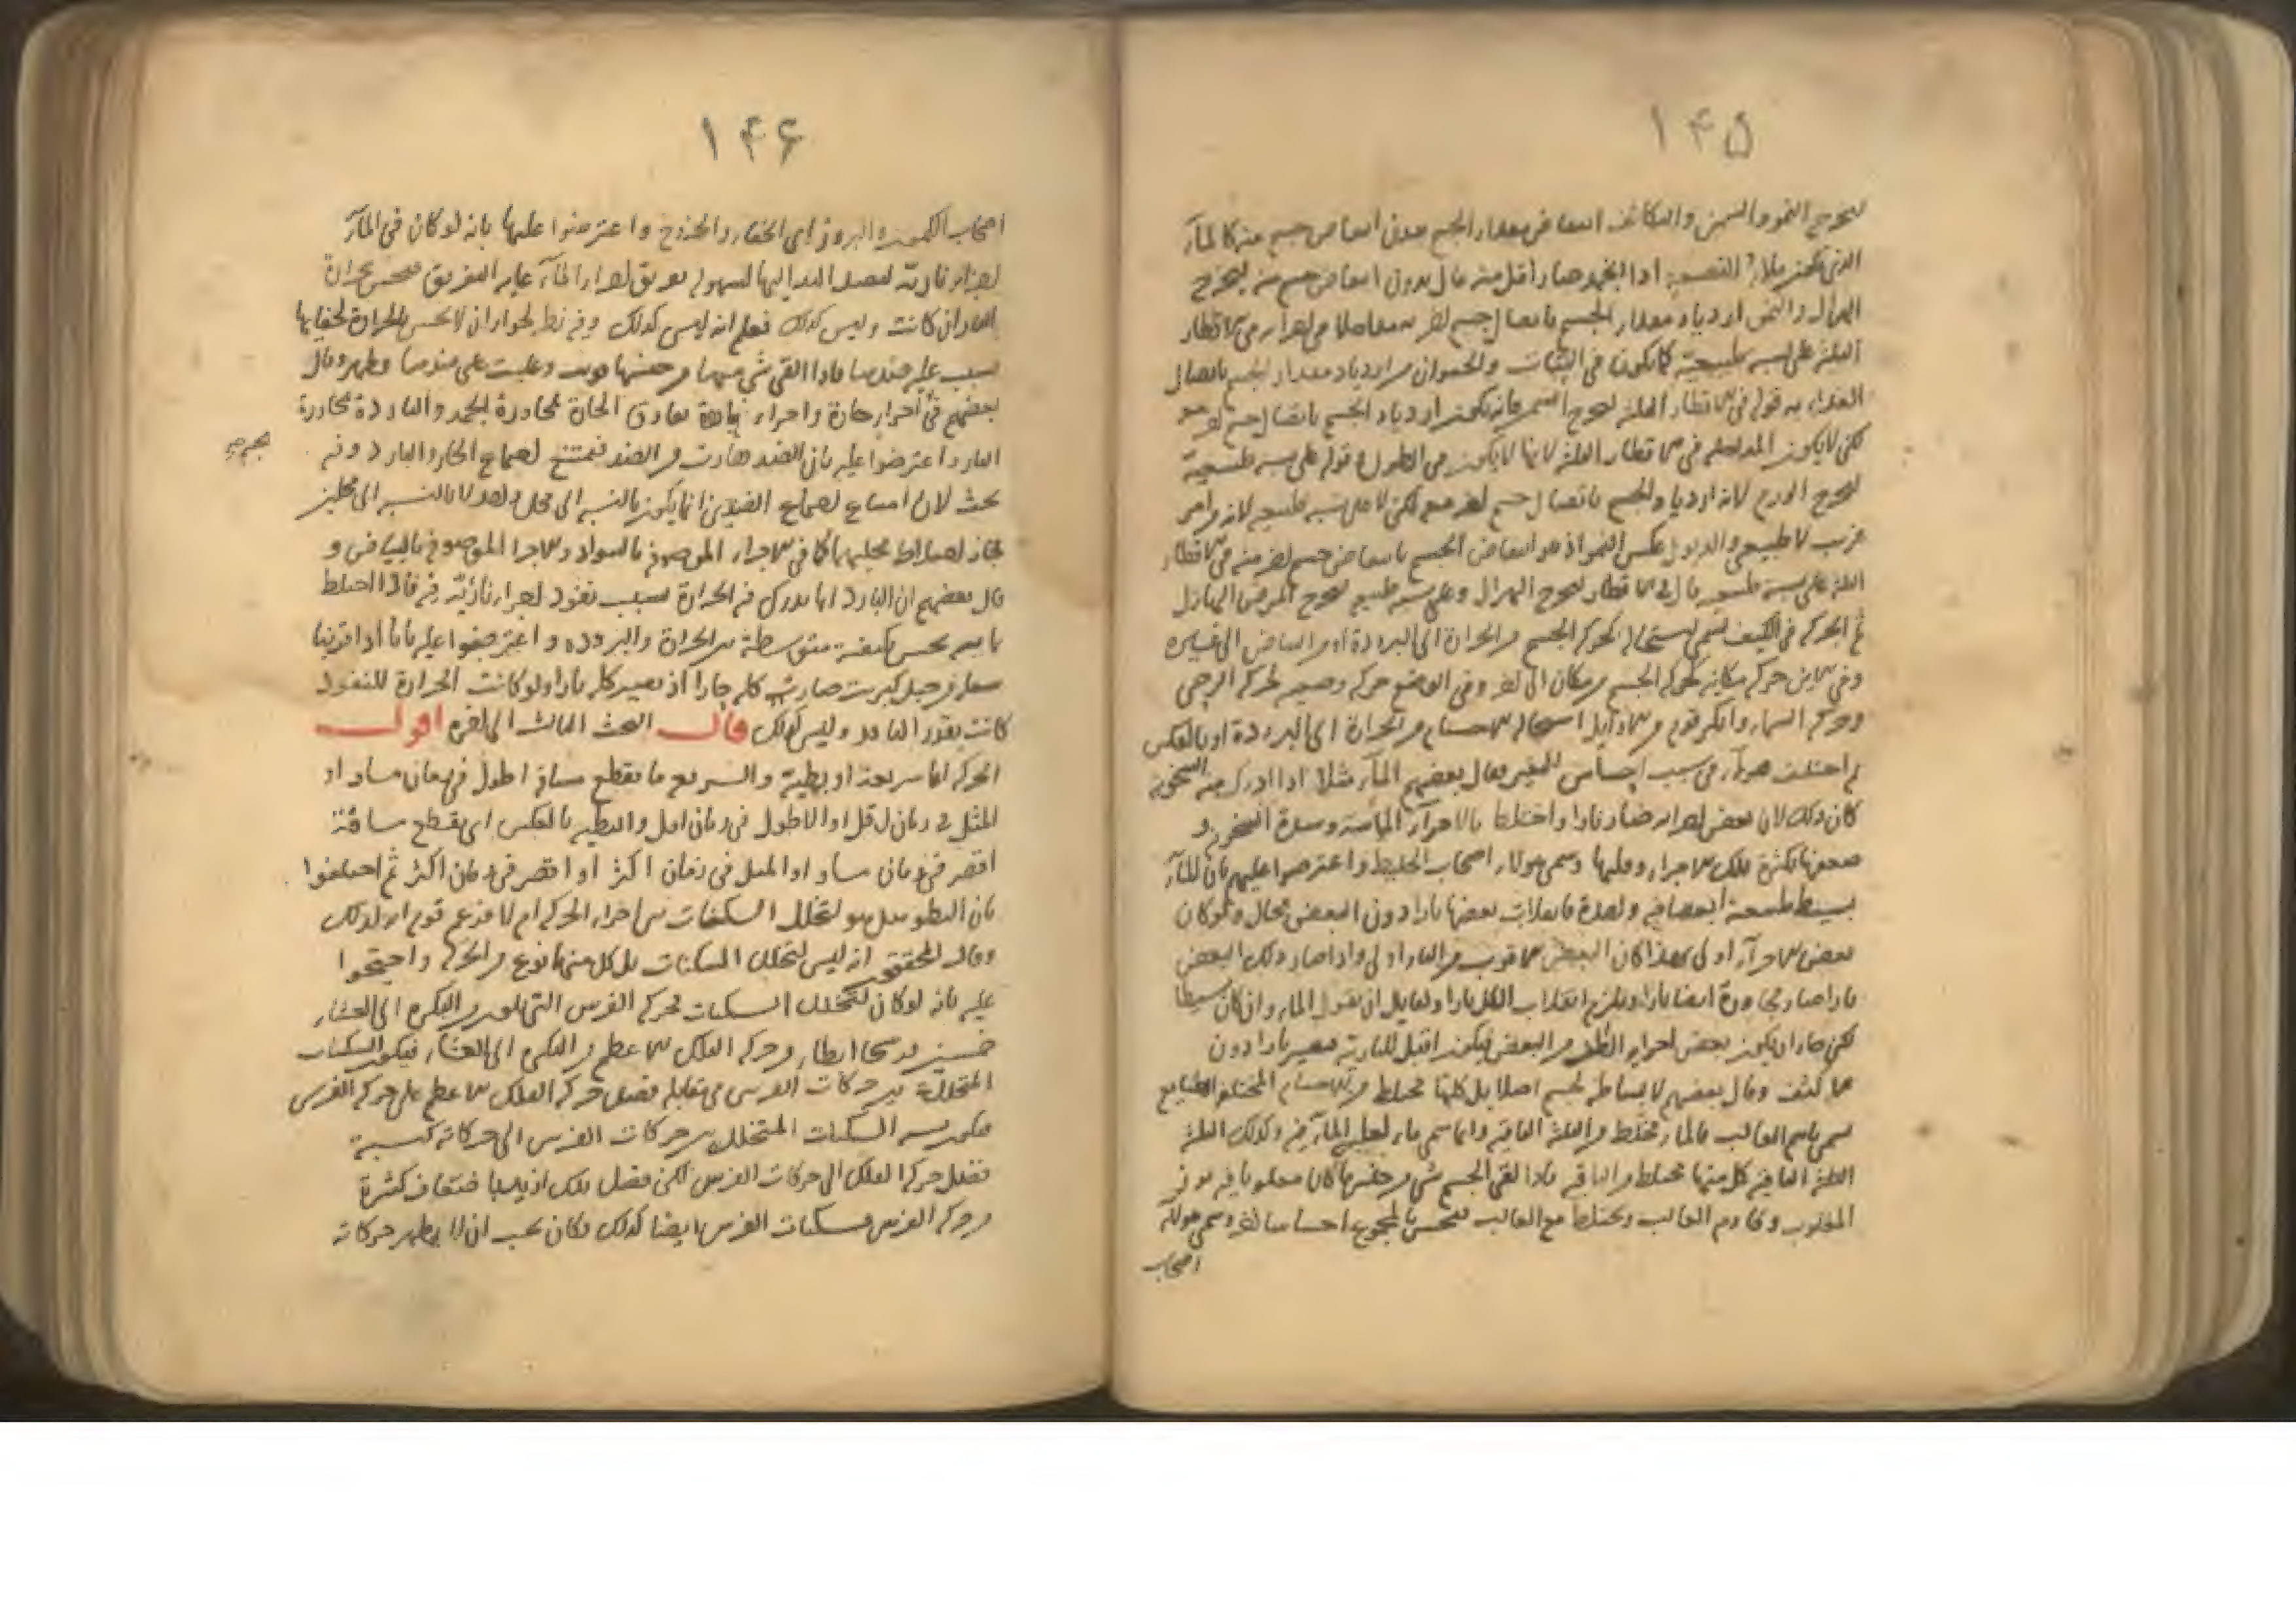 ١٤٥
ليخرج النمو والسمن والتكاثف انتقاص مقدار الجسم بدون انتقاص جسم منه كالمآء
اذا انجمد صار اقل منه قال بدون انتقاص جسم منه ليخرج
الهزال والنمو ازدياد مقدار الجسم باتصال جسم اخر به
الثلثة على نسبة طبيعية كما يكون في النبات والحيوان من ازدياد مقدار الجسم باتصال
الغذاء به قوله في الاقطار الثلثة ليخرج السمن فانه يكون ازدياد الجسم باتصال جسم اخر هو
لكن لا يكون المداخلة في الاقطار الثلثة لانها لا يكون في الطول و قوله على نسبة طبيعية
ليخرج الورم لانه ازدياد الجسم باتصال جسم اخر معه لكن لا على نسبة طبيعية لانه من امر
غريب لا طبيعي والذبول عكس النمو اذ هو انتقاص الجسم بانتقاص جسم اخر منه في الاقطار
الثلثة على نسبة طبيعية قال في الاقطار ليخرج الهزال وعلى نسبة طبيعية ليخرج المرض الهازل
ثم الحركة في الكيف تسمى استحالة كتحرك الجسم من الحرارة الى البرودة او من البياض الى غيره
وفي الاين حركة مكانية كحركة الجسم من مكان الى اخر وفي الوضع حركة وضعية كحركة الرحى
وحركة السماء وانكر قوم من الاوايل استحالة الاجسام من الحرارة الى البرودة او بالعكس
ثم اختلف هؤلآء في سبب احساس التغير فقال بعضهم المآء مثلا اذا ادرك منه السخونة
كان ذلك لان بعض اجزائه صار نارا واختلط بالاجزآء المائية وشدة السخونة و
ضعفها لكثرة تلك الاجزاء وقلتها وسمي هؤلاء اصحاب الخليط واعترضوا عليهم بان المآء
بسيط طبيعة ابعاضه واحدة فانقلاب بعضها نارا دون البعض محال ولو كان
بعض الاجزآء اولى بهذا كان البعض الاقرب من النار اولى واذا صار ذلك البعض
نارا صار مجاوره ايضا نارا ويلزم انقلاب الكل نارا ولقايل ان يقول الماء وان كان بسيطا
لكن جاز ان يكون بعض اجزائه الطف من البعض فيكون اقبل للنارية فيصير نارا دون
ما كثف وقال بعضهم لا بساطة لجسم اصلا بل كلها مختلط من الاجسام المختلفة الطبايع
يسمى باسم الغالب فالماء مختلط من الثلثة الباقية وانما سمى ماء لغلبة المآء فيه وكذلك الثلثة
الباقية كل منها مختلط من الباقية فاذا لقى الجسم شي من جنس ما كان مغلوبا فيه برز
المغلوب وقاوم الغالب ويختلط مع الغالب فيحس بالمجموع احساسا وسمي هؤلاء
اصحاب
١٤٦
اصحاب الكمون والبروز اي الخفاء والخروج واعترضوا عليها بانه لو كان في المآء
اجزاء نارية لوصل اليد اليها لسهولة تفريق اجزاء المآء غاية التفريق فيحس بحرارة
النار ان كانت وليس كذلك فعلم انه ليس كذلك وفيه نظر لجواز ان لا يحس بالحرارة لخفايها
بسبب غلبة ضدها فاذا لقى شي منها من جنسها قويت وغلبت على ضدها وظهر وقال
بعضهم في اجزاء حارة واجزاء باردة تفارق الحارة لمجاورة الجمد والباردة لمجاورة
النار واعترضوا عليه بان الضد هارب من الضد فيمتنع اجتماع الحار والبارد وفيه
بحث لان امتناع اجتماع الضدين انما يكون بالنسبة الى محل واحد لا بالنسبة الى محلين
لجاز اختلاط محليهما كما في الاجزاء الموصوفة بالسواد والاجزا الموصوفة بالبياض و
قال بعضهم ان البارد انما يدرك فيه الحرارة بسبب نفوذ اجزاء نارية فيه فاذا اختلط
بالجسم يحس بكيفية متوسطة بين الحرارة والبرودة واعترضوا عليه بانا اذا قربنا
شعلة من جبل كبريت صارت كله حارا اذ يصير كله نارا ولو كانت الحرارة للنفوذ
كانت بقدر النافذ وليس كذلك قال البحث الثالث الى اخره اقول
الحركة اما سريعة او بطيئة والسريع ما يقطع مسافة اطول في زمان مساو او
المثل في زمان اقل او الاطول في زمان اقل والبطيئة بالعكس اي يقطع مسافة
اقصر في زمان مساو او المثل في زمان اكثر او اقصر في زمان اكثر ثم اختلفوا
بان البطو هل هو لتخلل السكنات بين اجزاء الحركة ام لا فزعم قوم انه لذلك
وقال المحققون انه ليس لتخلل السكنات بل كل منها نوع من الحركة واحتجوا
عليه بانه لو كان لتخلل السكنات فحركة الفرس التي تعدو من البكرة الى العشاء
خمسين فرسخا ابطاء من حركة الفلك الاعظم من البكرة الى العشاء فيكون السكنات
المتخللة بين حركات الفرس في مقابلة فضل حركة الفلك الاعظم على حركة الفرس
فيكون نسبة السكنات المتخللة بين حركات الفرس الى حركاته كنسبة
فضل حركة الفلك الى حركات الفرس لكن فضل تلك ازيد باضعاف كثيرة
من حركة الفرس فسكنات الفرس ايضا كذلك فكان يجب ان لا يظهر حركاته